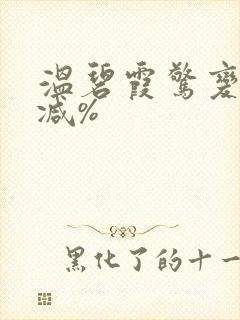 温碧霞驚變
减%
黑化了的十一